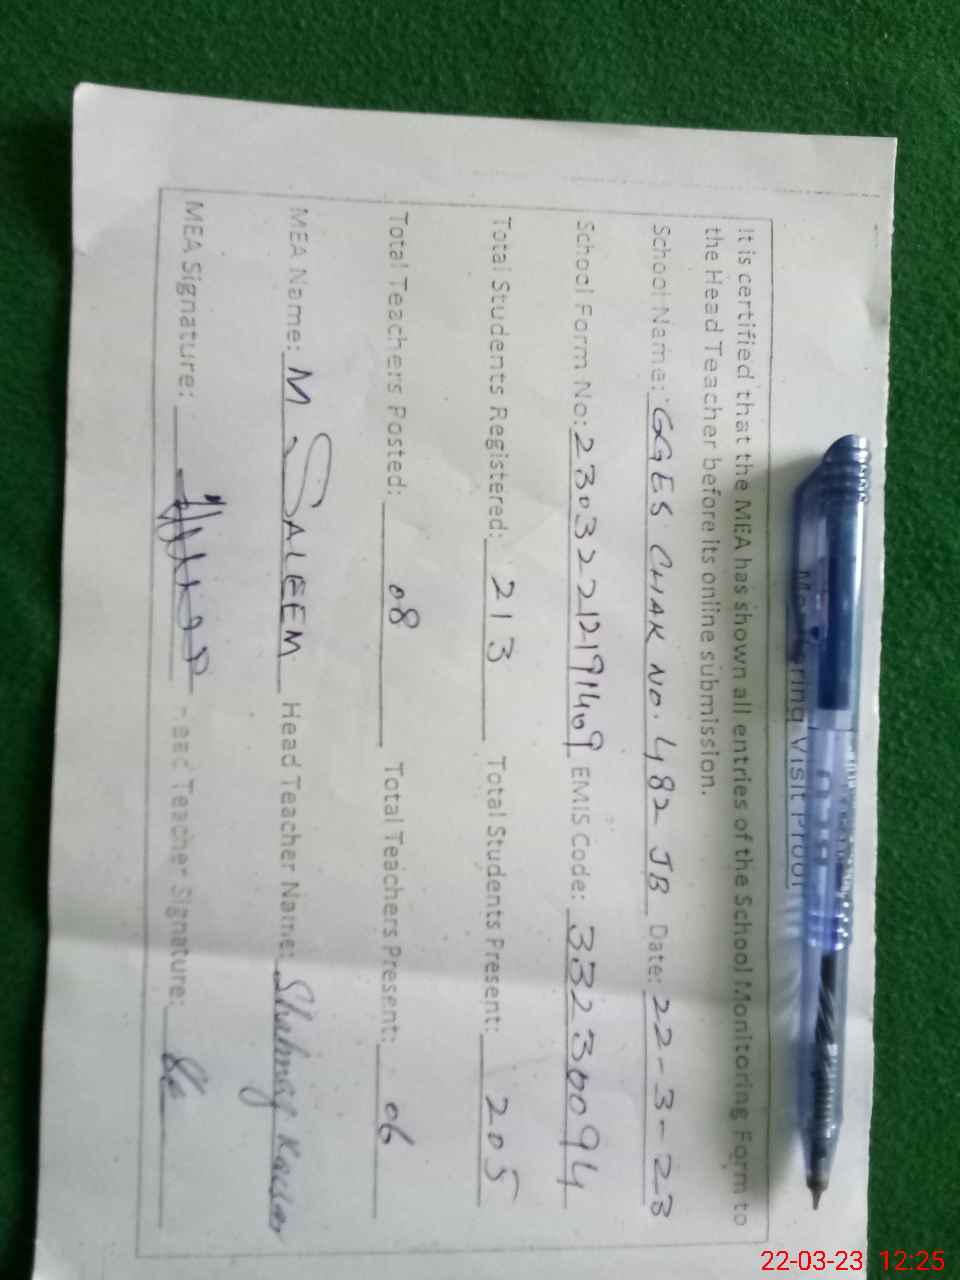 Visit Proof
It is certified that the MEA has shown all entries of the School Monitoring Form to
the Head Teacher before its online submission.
School Name: GGES CHAK NO. 482 JB Date: 22-3-23
School Form No: 23032212191409 EMIS Code: 33230094
Total Students Registered: 213 Total Students Present: 205
Total Teachers Posted: 08 Total Teachers Present: 06
MEA Name: M SALEEM Head Teacher Name: Kausar
MEA Signature: Head Teacher Signature:
22-03-23 12:25